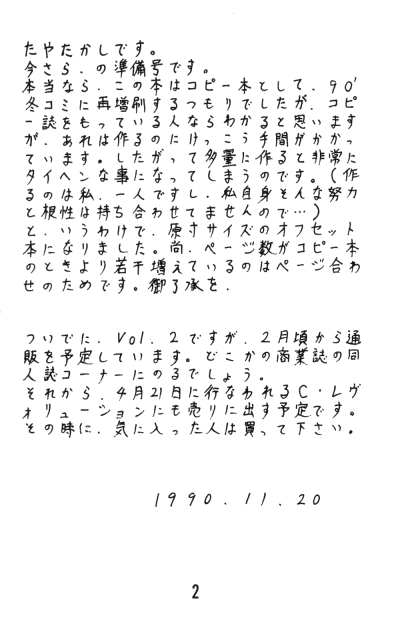 たやたかしです。
今さら、の準備号です。
本当なら、この本はコピー本として、90'
冬コミに再増刷するつもりでしたが、コピ
ー誌をもっている人ならわかると思います
が、あれは作るのにけっこう手間がかかっ
ています。したがって多量に作ると非常に
タイヘンな事になってしまうのです。(作
るのは私、一人ですし、私自身そんな努力
と根性は持ち合わせてませんので…)
と、いうわけで、原寸サイズのオフセット
本になりました。尚、ページ数がコピー本
のときより若干増えているのはページ合わ
せのためです。御了承を、
ついでに、Vol.2ですが、2月頃から通
販を予定しています。どこかの商業誌の同
人誌コーナーにのるでしょう。
それから、4月21日に行なわれるC・レヴ
ォリューションにも売りに出す予定です。
その時に、気に入った人は買って下さい。
1990.11.20
2